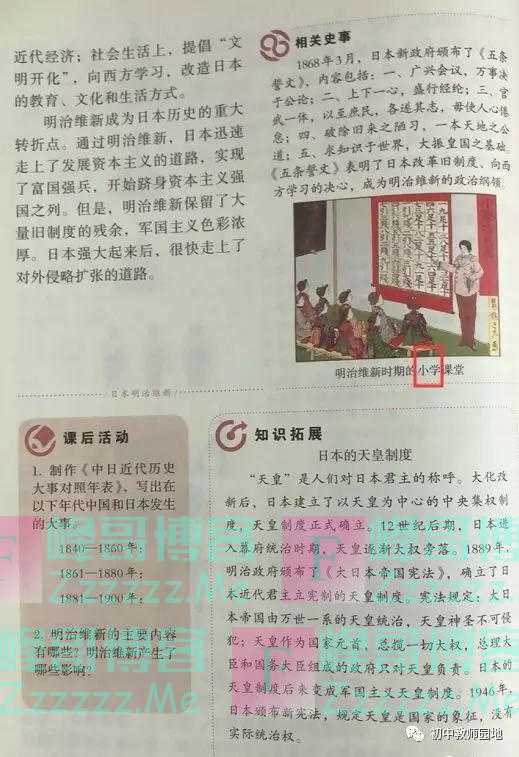 近代经济；社会生活上，提倡“文
明开化”，向西方学习，改造日本
的教育、文化和生活方式。
明治维新成为日本历史的重大
转折点。通过明治维新，日本迅速
走上了发展资本主义的道路，实现
了富国强兵，开始跻身资本主义强
国之列。但是，明治维新保留了大
量旧制度的残余，军国主义色彩浓
厚。日本强大起来后，很快走上了
对外侵略扩张的道路。
相关史事
1868年3月，日本新政府颁布了《五条
誓文》，内容包括：一、广兴会议，万事决
于公论；二、上下一心，盛行经纶；三、官
武一体，以至庶民，各遂其志，毋使人心倦
怠；四、破除旧来之陋习，一本天地之公
道；五、求知识于世界，大振皇国之基础。
《五条誓文》表明了日本改革旧制度、向西
方学习的决心，成为明治维新的政治纲领。
明治维新时期的小学课堂
日本明治维新
课后活动
1. 制作《中日近代历史
大事对照年表》，写出在
以下年代中国和日本发生
的大事。
1840—1860年：
1861—1880年：
1981—1900年：
2. 明治维新的主要内容
有哪些？明治维新产生了
哪些影响？
知识拓展
日本的天皇制度
“天皇”是人们对日本君主的称呼。大化改
新后，日本建立了以天皇为中心的中央集权制
度，天皇制度正式确立。12世纪后期，日本进
入幕府统治时期，天皇逐渐大权旁落。1889年，
明治政府颁布了《大日本帝国宪法》，确立了日
本近代君主立宪制的天皇制度。宪法规定：大日
本帝国由万世一系的天皇统治，天皇神圣不可侵
犯；天皇作为国家元首，总揽一切大权，总理大
臣和国务大臣组成的政府只对天皇负责。日本的
天皇制度后来变成军国主义天皇制度。1946年，
日本颁布新宪法，规定天皇是国家的象征，没有
实际统治权。
Zzzzzz.Me
Zzzzzz.Me
初中教师园地